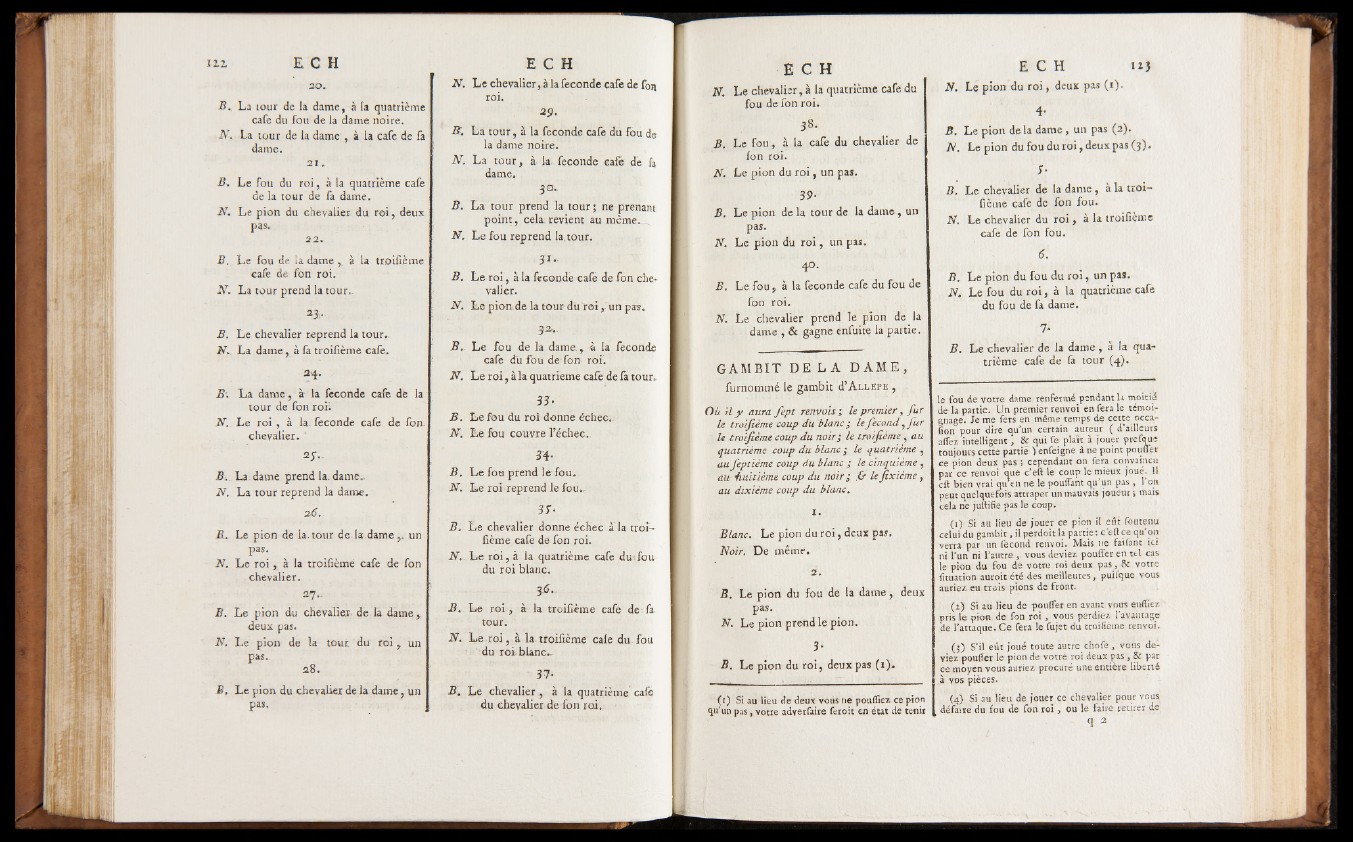 122 E C H
20.
B. La tour de la dame, à la quatrième
cafe du fou de la dame noire.
N. La tour de la dame , à la cafe de fa
dame.
21.
B. Le fou du roi, à la quatrième cafe
de la tour de fa dame.
N. Le pion du chevalier du roi, deux
pas.
22.
B. Le fou de la dame , à la troifième
cafe de fon roi.
N. La tour prend la tour.
23.
B. Le chevalier reprend la tour.
N. La dame, à fa troifième cafe.
24.
B. La dame, à la feconde cafe de la
tour de fon roi.
N. Le roi , à la feconde cafe de fon
chevalier.
25.
B. La dame prend la dame.
N. La tour reprend la dame.
26.
B. Le pion de la tour de la dame, un
pas.
N. Le roi , à la troifième cafe de fon
chevalier.
27.
B. Le pion du chevalier de la dame,
deux pas.
N. Le pion de la tour du roi, un
pas.
28.
B. Le pion du chevalier de la dame, un
pas.
E C H
N. Le chevalier, à la feconde cafe de fon
roi.
29.
B. La tour, à la feconde cafe du fou de
la dame noire.
N. La tour, à la feconde cafe de fa
dame.
30.
B. La tour prend la tour; ne prenant
point, cela revient au même.
N. Le fou reprend la tour.
31.
B. Le roi, à la feconde cafe de fon che-
valier.
N. Le pion de la tour du roi, un pas.
32.
B. Le fou de la dame, à la feconde
cafe du fou de fon roi.
N. Le roi, à la quatrieme cafe de fa tour.
33.
B. Le fou du roi donne échec.
N. Le fou couvre l'échec.
34.
B. Le fou prend le fou.
N. Le roi reprend le fou.
35.
B. Le chevalier donne échec à la troi-
fième cafe de fon roi.
N. Le roi, à la quatrième cafe du fou
du roi blanc.
36.
B. Le roi, à la troifième cafe de fa
tour.
N. Le roi, à la troifième cafe du fou
du roi blanc.
37.
B. Le chevalier, à la quatrième cafe
du chevalier de fon roi.
E C H
N. Le chevalier, à la quatrième cafe du
fou de fon roi.
38.
B. Le fou, à la cafe du chevalier de
fon roi.
N. Le pion du roi, un pas.
39.
B. Le pion de la tour de la dame, un
pas.
N. Le pion du roi, un pas.
40.
B. Le fou, à la feconde cafe du fou de
fon roi.
N. Le chevalier prend le pion de la
dame, & gagne enfuite la partie.
GAMBIT DE LA DAME,
furnommé le gambit d'ALLEPE,
Où il y aura fept renvois; le premier, fur
le troifième coup du blanc; le fecond, fur
le troifième coup du noir; le troifième, au
quatrième coup du blanc; le quatrième,
au feptième coup du blanc; le cinquième,
au huitième coup du noir; & le fixième,
au dixième coup du blanc.
1.
Blanc. Le pion du roi, deux pas.
Noir. De même.
2.
B. Le pion du fou de la dame, deux
pas.
N. Le pion prend le pion.
3.
B. Le pion du roi, deux pas (1).
(1) Si au lieu de deux vous ne pouffiez ce pion
qu'un pas, votre adverfaire feroit en état de tenir
E C H 123
N. Le pion du roi, deux pas (1).
4.
B. Le pion de la dame, un pas (2).
N. Le pion du fou du roi, deux pas (3).
5.
B. Le chevalier de la dame, à la troi-
fième cafe de fon fou.
N. Le chevalier du roi, à la troifième
cafe de fon fou.
6.
B. Le pion du fou du roi, un pas.
N. Le fou du roi, à la quatrième cafe
du fou de fa dame.
7.
B. Le chevalier de la dame, à la qua-
trième cafe de fa tour (4).
le fou de votre dame renfermé pendant la moitié
de la partie. Un premier renvoi en fera le témoi-
gnage. Je me fers en même temps de cette occa-
fion pour dire qu'un certain auteur ( d'ailleurs
affez intelligent, & qui fe plaît à jouer prefque
toujours cette partie ) enfeigne à ne point pouffer
ce pion deux pas; cependant on fera convaincu
par ce renvoi que c'eft le coup le mieux joué. Il
eft bien vrai qu'en ne le pouffant qu'un pas, l'on
peut quelquefois attraper un mauvais joueur; mais
cela ne juftifie pas le coup.
(1) Si au lieu de jouer ce pion il eût foutenu
celui du gambit, il perdoit la partie: c'eft ce qu'on
verra par un fecond renvoi. Mais ne faifant ici
ni l'un ni l'autre, vous deviez pouffer en tel cas
le pion du fou de votre roi deux pas, & votre
fituation auroit été des meilleures, puifque vous
auriez eu trois pions de front.
(2) Si au lieu de pouffer en avant vous euffiez
pris le pion de fon roi, vous perdiez l'avantage
de l'attaque. Ce fera le fujet du troifième renvoi.
(3) S'il eût joué toute autre chofe, vous de-
viez pouffer le pion de votre roi deux pas, & par
ce moyen vous auriez procuré une entière liberté
à vos pièces.
(4) Si au lieu de jouer ce chevalier pour vous
défaire du fou de fon roi, ou le faire retirer de
q 2